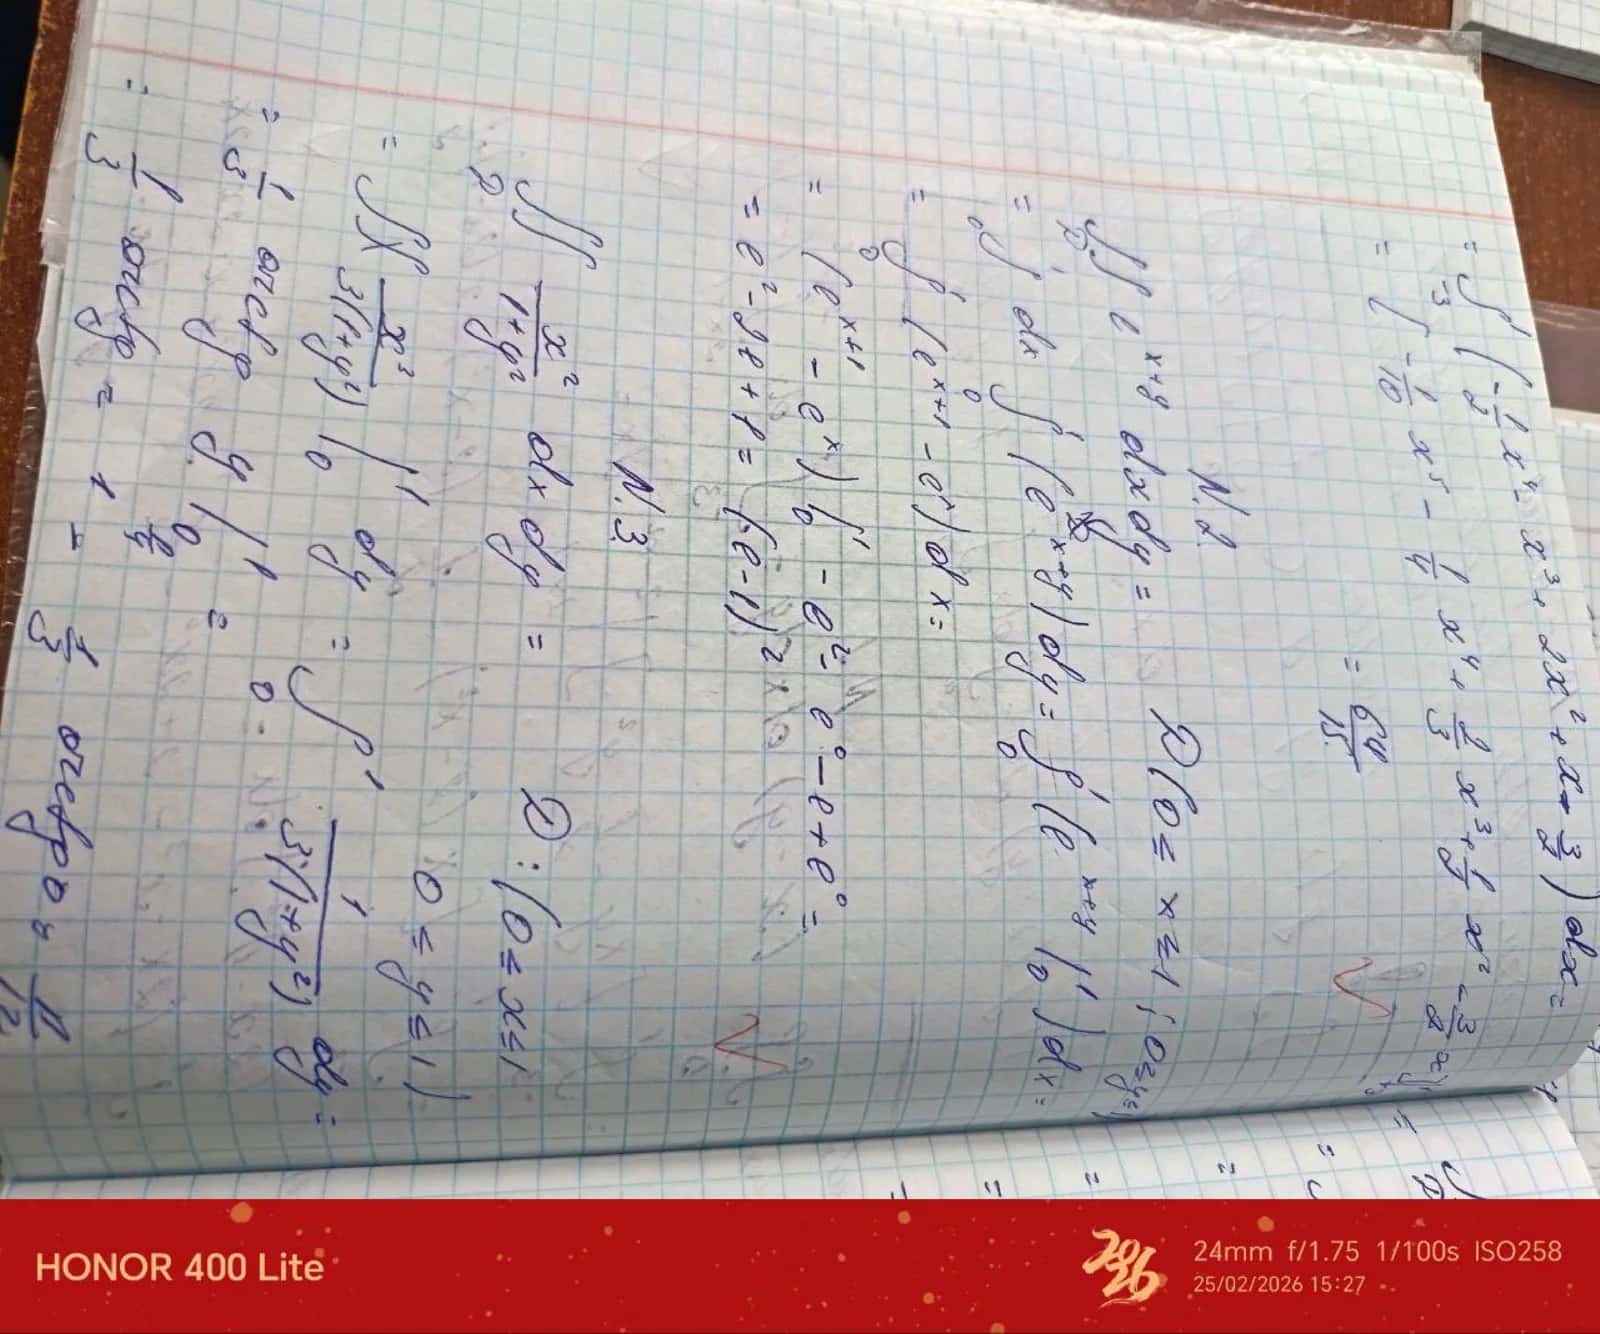 = ∫₋₃¹ (-1/2 x⁴ - x³ + 2x² + x - 3/2) dx =
= (-1/10 x⁵ - 1/4 x⁴ + 2/3 x³ + 1/2 x² - 3/2 x)
= 64/15.
N.2.
∬ e^(x+y) dx dy = D (0 ≤ x ≤ 1; 0 ≤ y ≤ 1)
D
= ∫₀¹ dx ∫₀¹ (e^(x+y)) dy = ∫₀¹ (e^(x+y) |₀¹) dx =
= ∫₀¹ (e^(x+1) - e^x) dx =
= (e^(x+1) - e^x) |₀¹ = e² - e⁰ - e + e⁰ =
= e² - 2e + 1 = (e-1)²
N.3.
∬ x²/(1+y²) dx dy = D: (0 ≤ x ≤ 1
D
0 ≤ y ≤ 1)
= ∫ x³/(3(1+y²)) |₀¹ dy = ∫₀¹ 1/(3(1+y²)) dy =
= 1/3 arctg y |₀¹ =
= 1/3 arctg 1 - 1/3 arctg 0 = π/12
HONOR 400 Lite
2026
24mm f/1.75 1/100s ISO258
25/02/2026 15:27